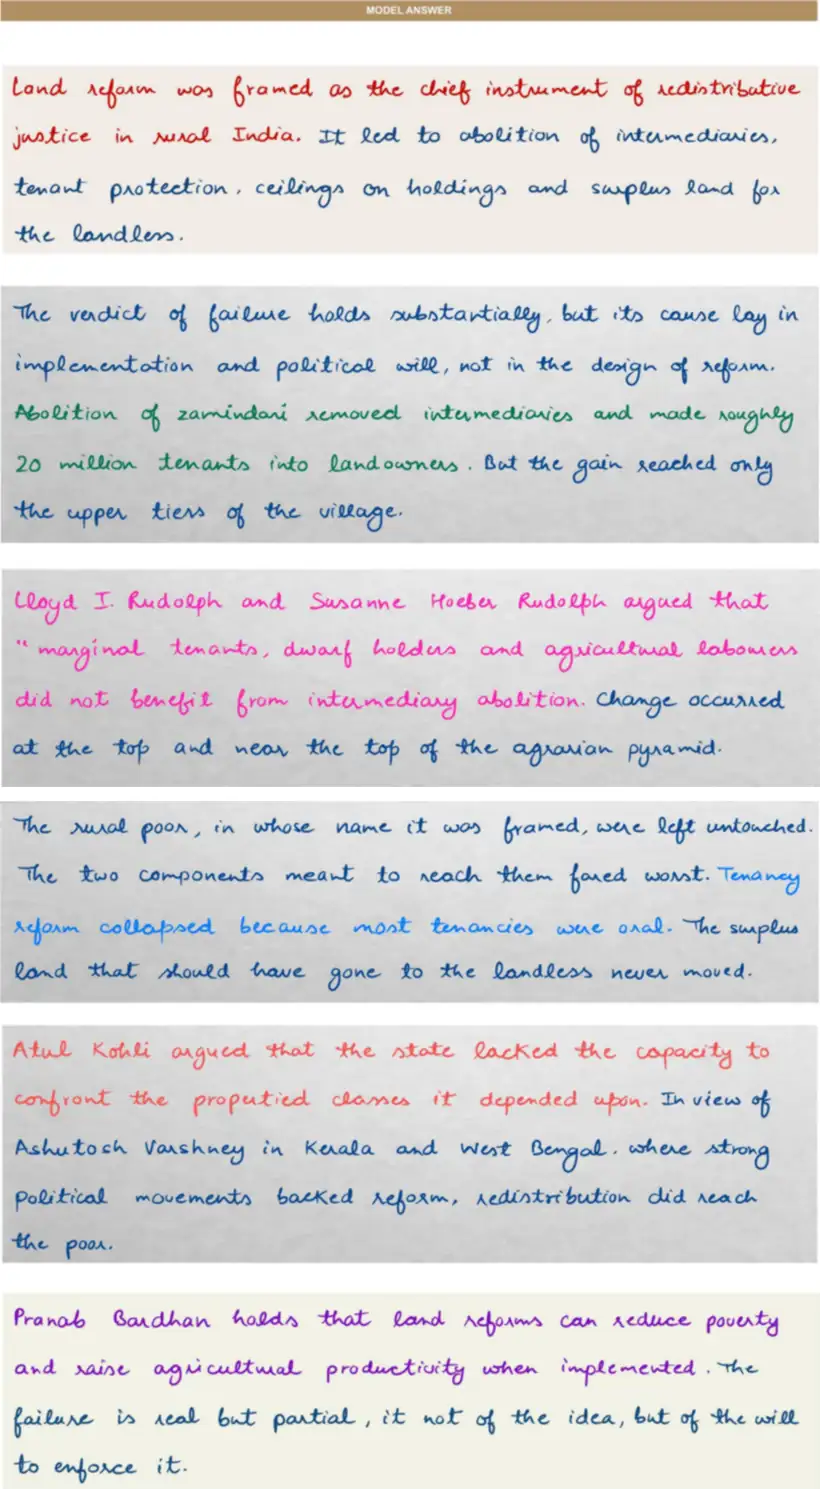 MODEL ANSWER
Land reform was framed as the chief instrument of redistributive
justice in rural India. It led to abolition of intermediaries,
tenant protection, ceilings on holdings and surplus land for
the landless.
The verdict of failure holds substantially, but its cause lay in
implementation and political will, not in the design of reform.
Abolition of zamindari removed intermediaries and made roughly
20 million tenants into landowners. But the gain reached only
the upper tiers of the village.
Lloyd I. Rudolph and Susanne Hoeber Rudolph argued that
"marginal tenants, dwarf holders and agricultural labourers
did not benefit from intermediary abolition. Change occurred
at the top and near the top of the agrarian pyramid.
The rural poor, in whose name it was framed, were left untouched.
The two components meant to reach them fared worst. Tenancy
reform collapsed because most tenancies were oral. The surplus
land that should have gone to the landless never moved.
Atul Kohli argued that the state lacked the capacity to
confront the propertied classes it depended upon. In view of
Ashutosh Varshney in Kerala and West Bengal, where strong
political movements backed reform, redistribution did reach
the poor.
Pranab Bardhan holds that land reforms can reduce poverty
and raise agricultural productivity when implemented. The
failure is real but partial, it not of the idea, but of the will
to enforce it.